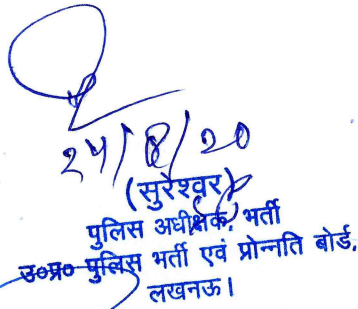 24/8/20
(सुरेश्वर)
पुलिस अधीक्षक, भर्ती
उ०प्र० पुलिस भर्ती एवं प्रोन्नति बोर्ड,
लखनऊ।